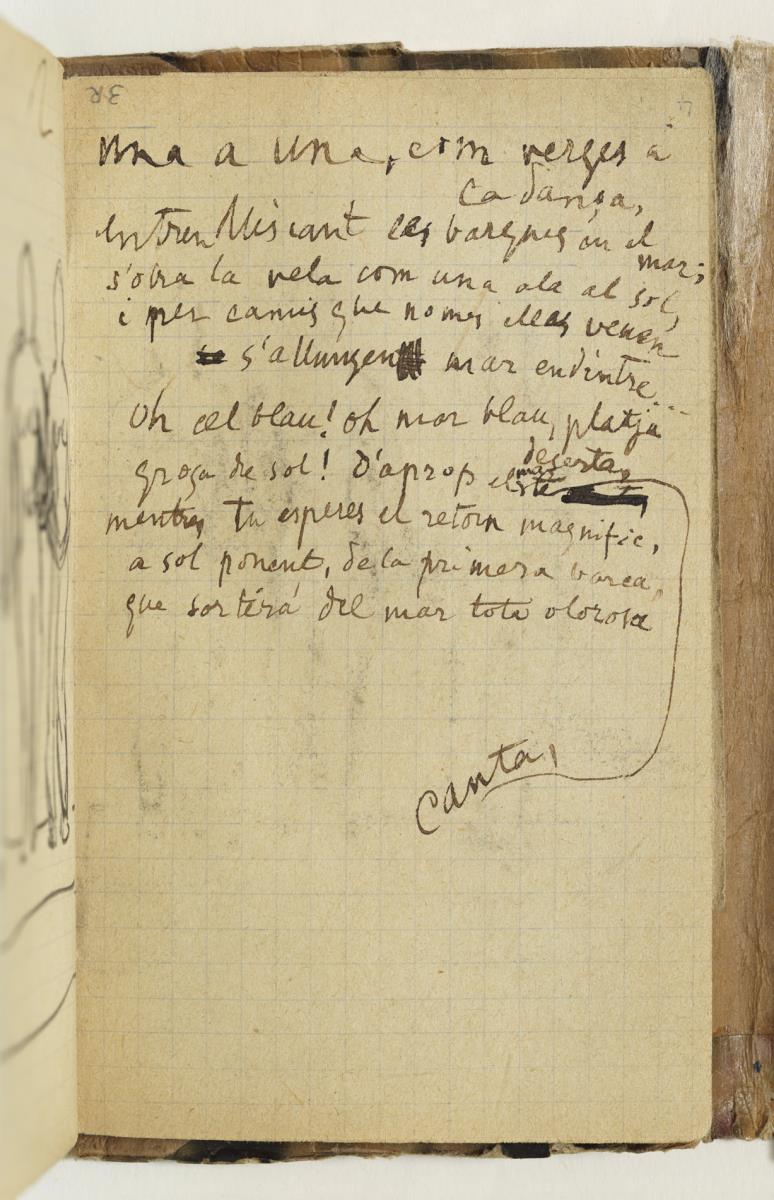 3R
una a una, com verges a
la dansa,
entren lliscant les barques en el
mar;
s'obra la vela com una ala al sol,
i per camis que nomes elles veuen
s'allunyen mar endintre...
Oh cel blau! oh mar blau, platja
deserta,
groga de sol! D'aprop el mar te
canta,
mentres tu esperes el retorn magnific,
a sol ponent, de la primera barca,
que sortirá del mar tota olorosa